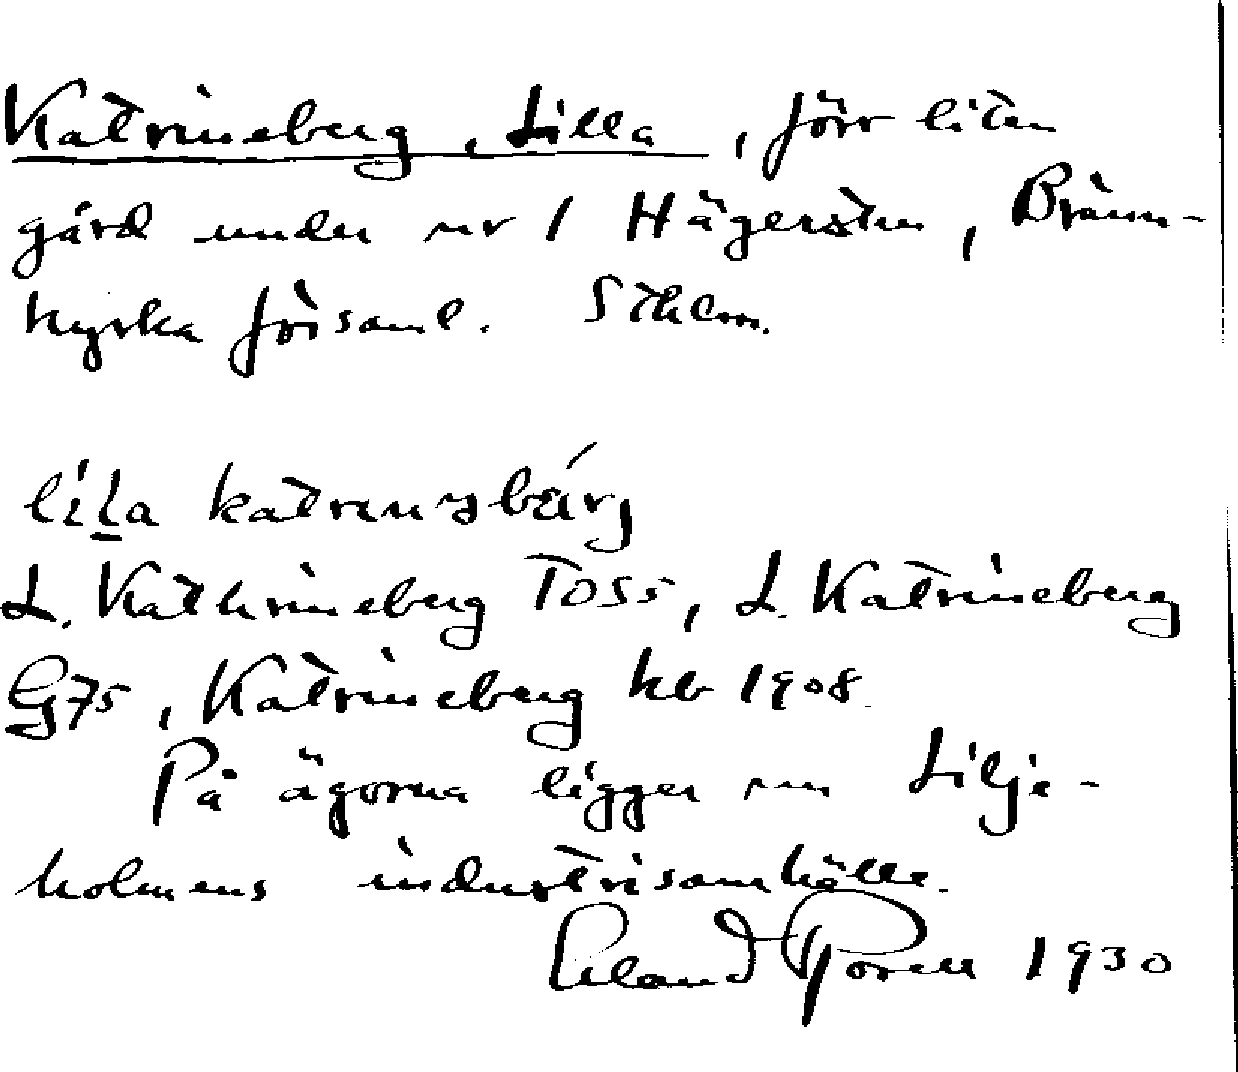 Katrineberg, Lilla, förr liten
gård under nr 1 Hägersten, Bränn-
kyrka församl. Sthlm.
L. Kathrineberg Toss, L. Katrineberg
G75, Katrineberg kb 1908.
På ägorna ligger nu Lilje-
holmens industrisamhälle.
1930